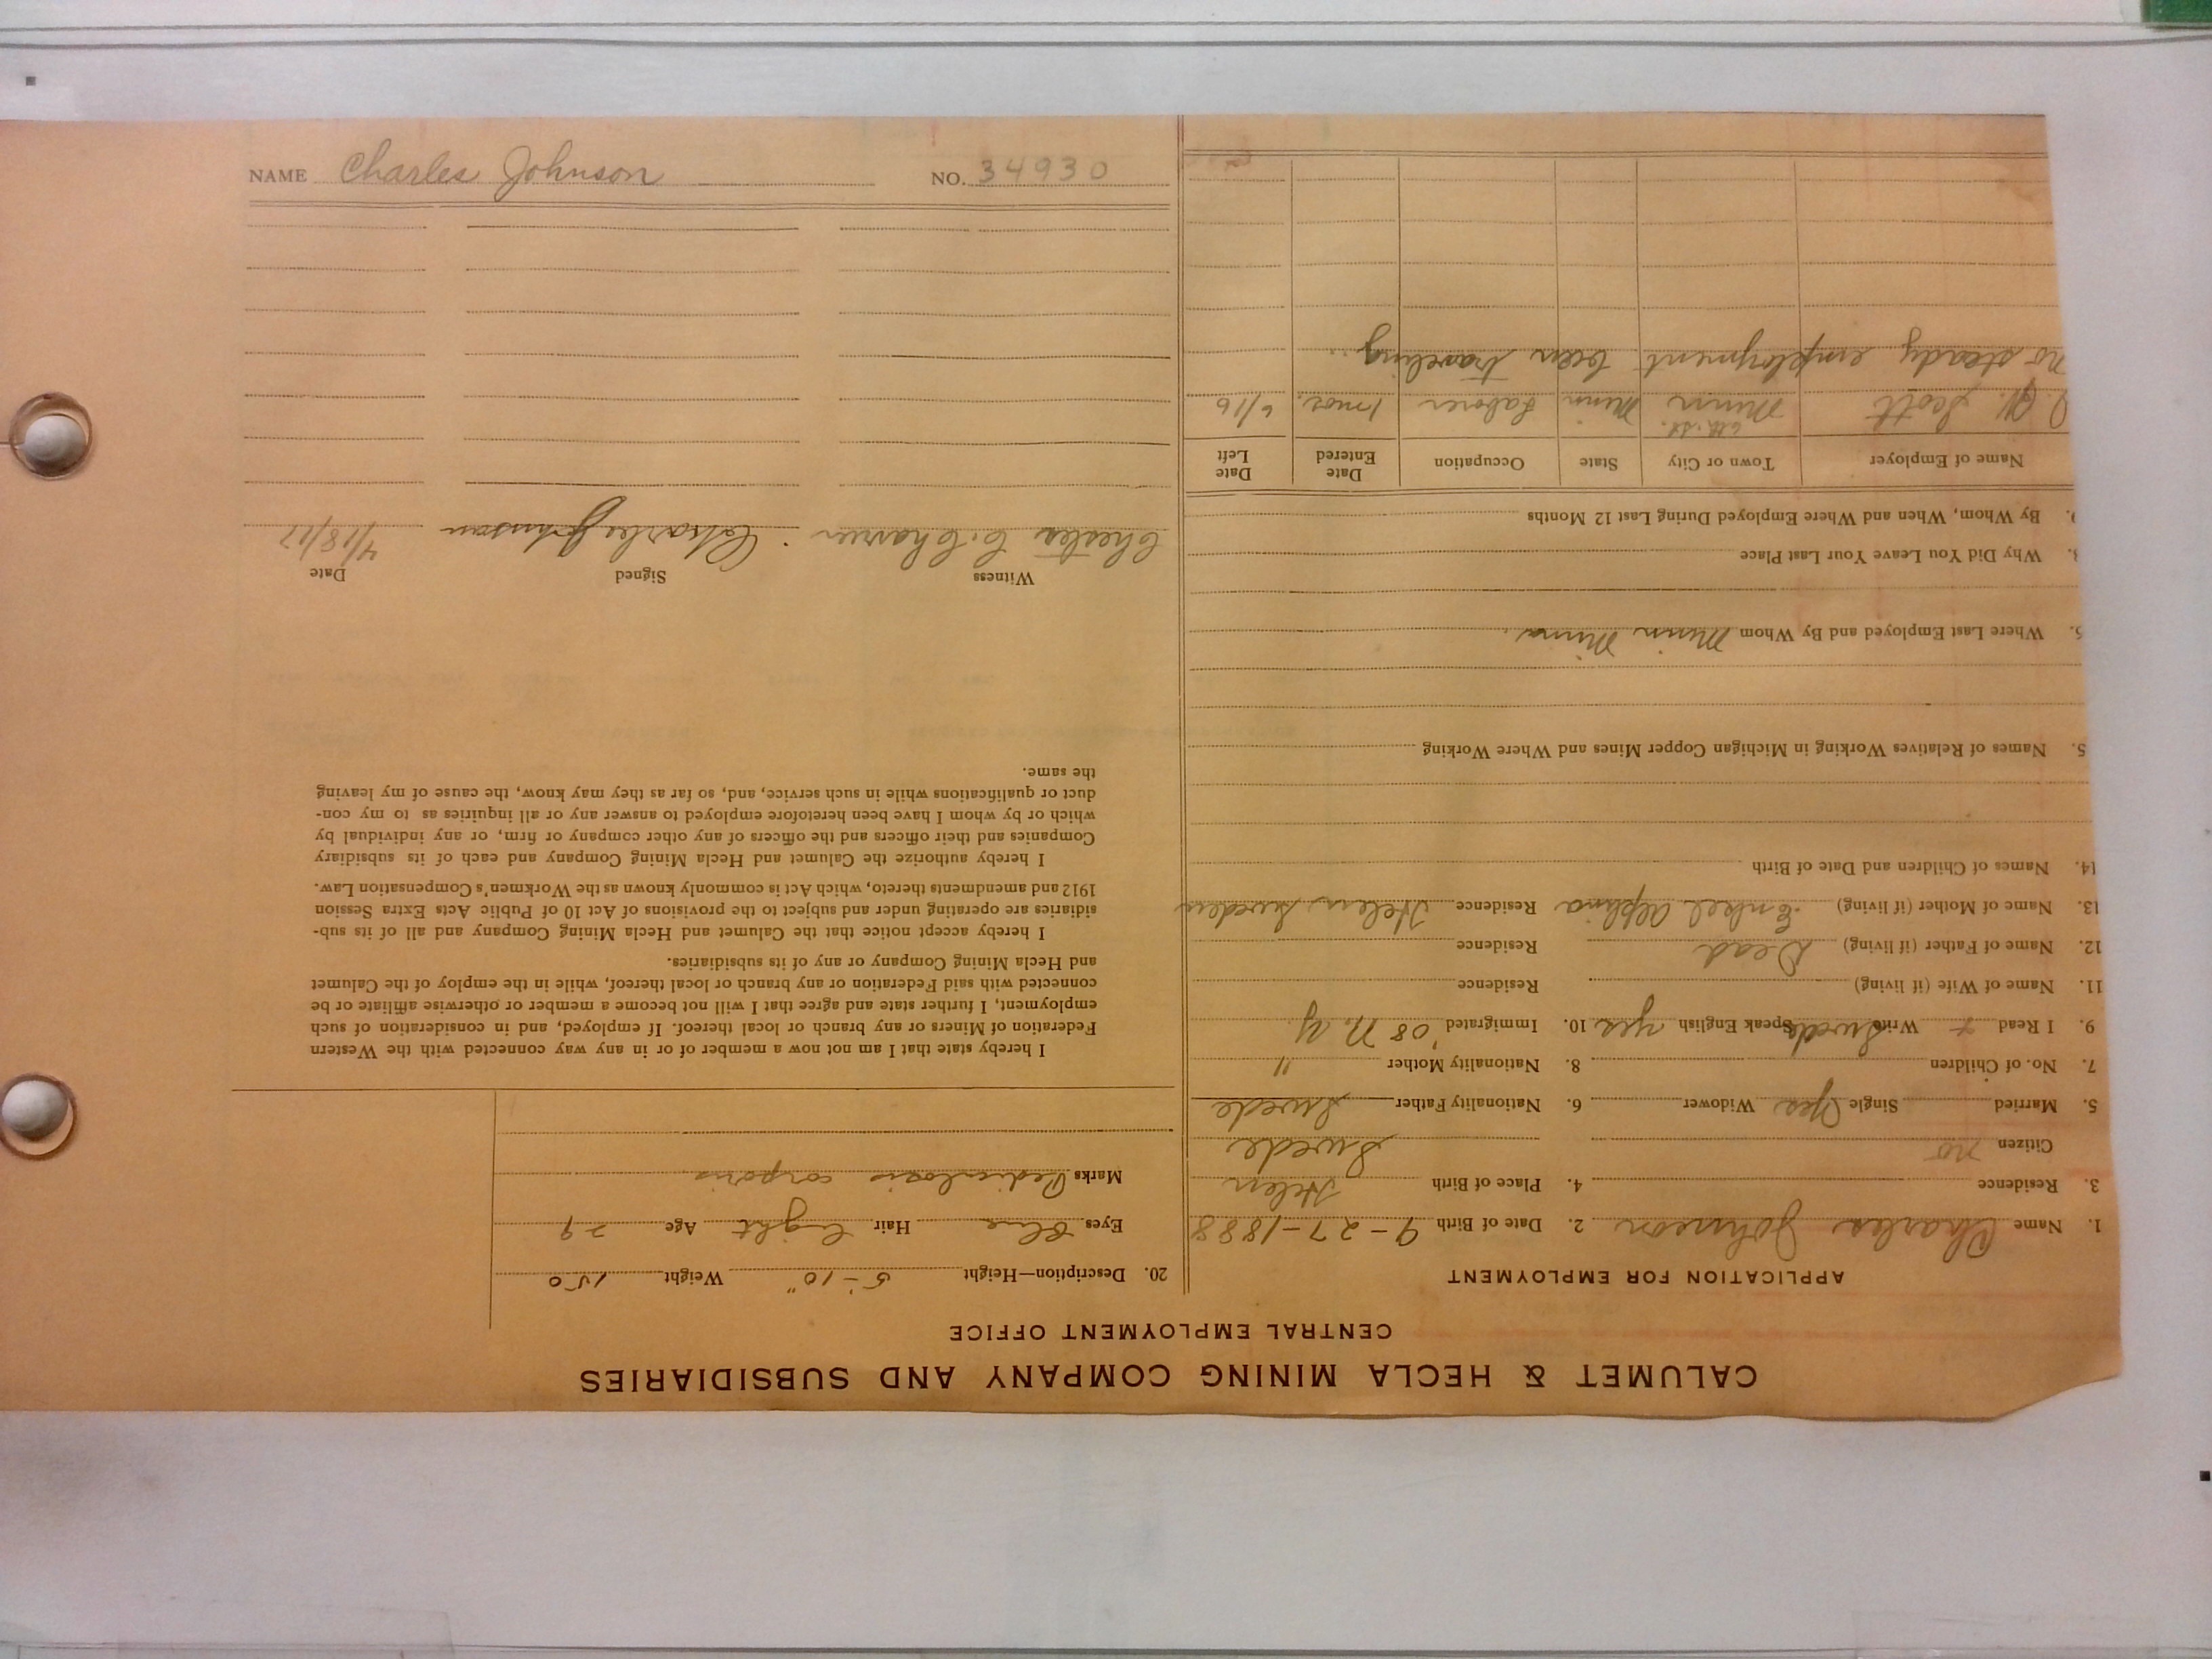 NAME Charles Johnson NO. 34930
CALUMET & HECLA MINING COMPANY AND SUBSIDIARIES
CENTRAL EMPLOYMENT OFFICE
APPLICATION FOR EMPLOYMENT
1. Name Charles Johnson 2. Date of Birth 9-27-1888
3. Residence 4. Place of Birth Helen
Citizen no Swede
5. Married Single Yes Widower 6. Nationality Father Swede
7. No. of Children 8. Nationality Mother "
9. I Read + Write Swede Speak English yes 10. Immigrated '08 N.Y.
11. Name of Wife (if living) Residence
12. Name of Father (if living) Dead Residence
13. Name of Mother (if living) Residence Helen, Sweden
14. Names of Children and Date of Birth
5. Names of Relatives Working in Michigan Copper Mines and Where Working
Where Last Employed and By Whom Minn Minn.
Why Did You Leave Your Last Place
By Whom, When and Where Employed During Last 12 Months
Name of Employer Town or City State Occupation Date Entered Date Left
Scott 6th. St. Minn Minn Laborer 1 mos. 6/16
no steady employment been traveling
20. Description—Height 5'-10" Weight 150
Eyes Blue Hair Light Age 29
Marks Pediculosis corporis
I hereby state that I am not now a member of or in any way connected with the Western
Federation of Miners or any branch or local thereof. If employed, and in consideration of such
employment, I further state and agree that I will not become a member or otherwise affiliate or be
connected with said Federation or any branch or local thereof, while in the employ of the Calumet
and Hecla Mining Company or any of its subsidiaries.
I hereby accept notice that the Calumet and Hecla Mining Company and all of its sub-
sidiaries are operating under and subject to the provisions of Act 10 of Public Acts Extra Session
1912 and amendments thereto, which Act is commonly known as the Workmen's Compensation Law.
I hereby authorize the Calumet and Hecla Mining Company and each of its subsidiary
Companies and their officers and the officers of any other company or firm, or any individual by
which or by whom I have been heretofore employed to answer any or all inquiries as to my con-
duct or qualifications while in such service, and, so far as they may know, the cause of my leaving
the same.
Witness Signed Date
Chester C. Charles Johnson 4/18/17